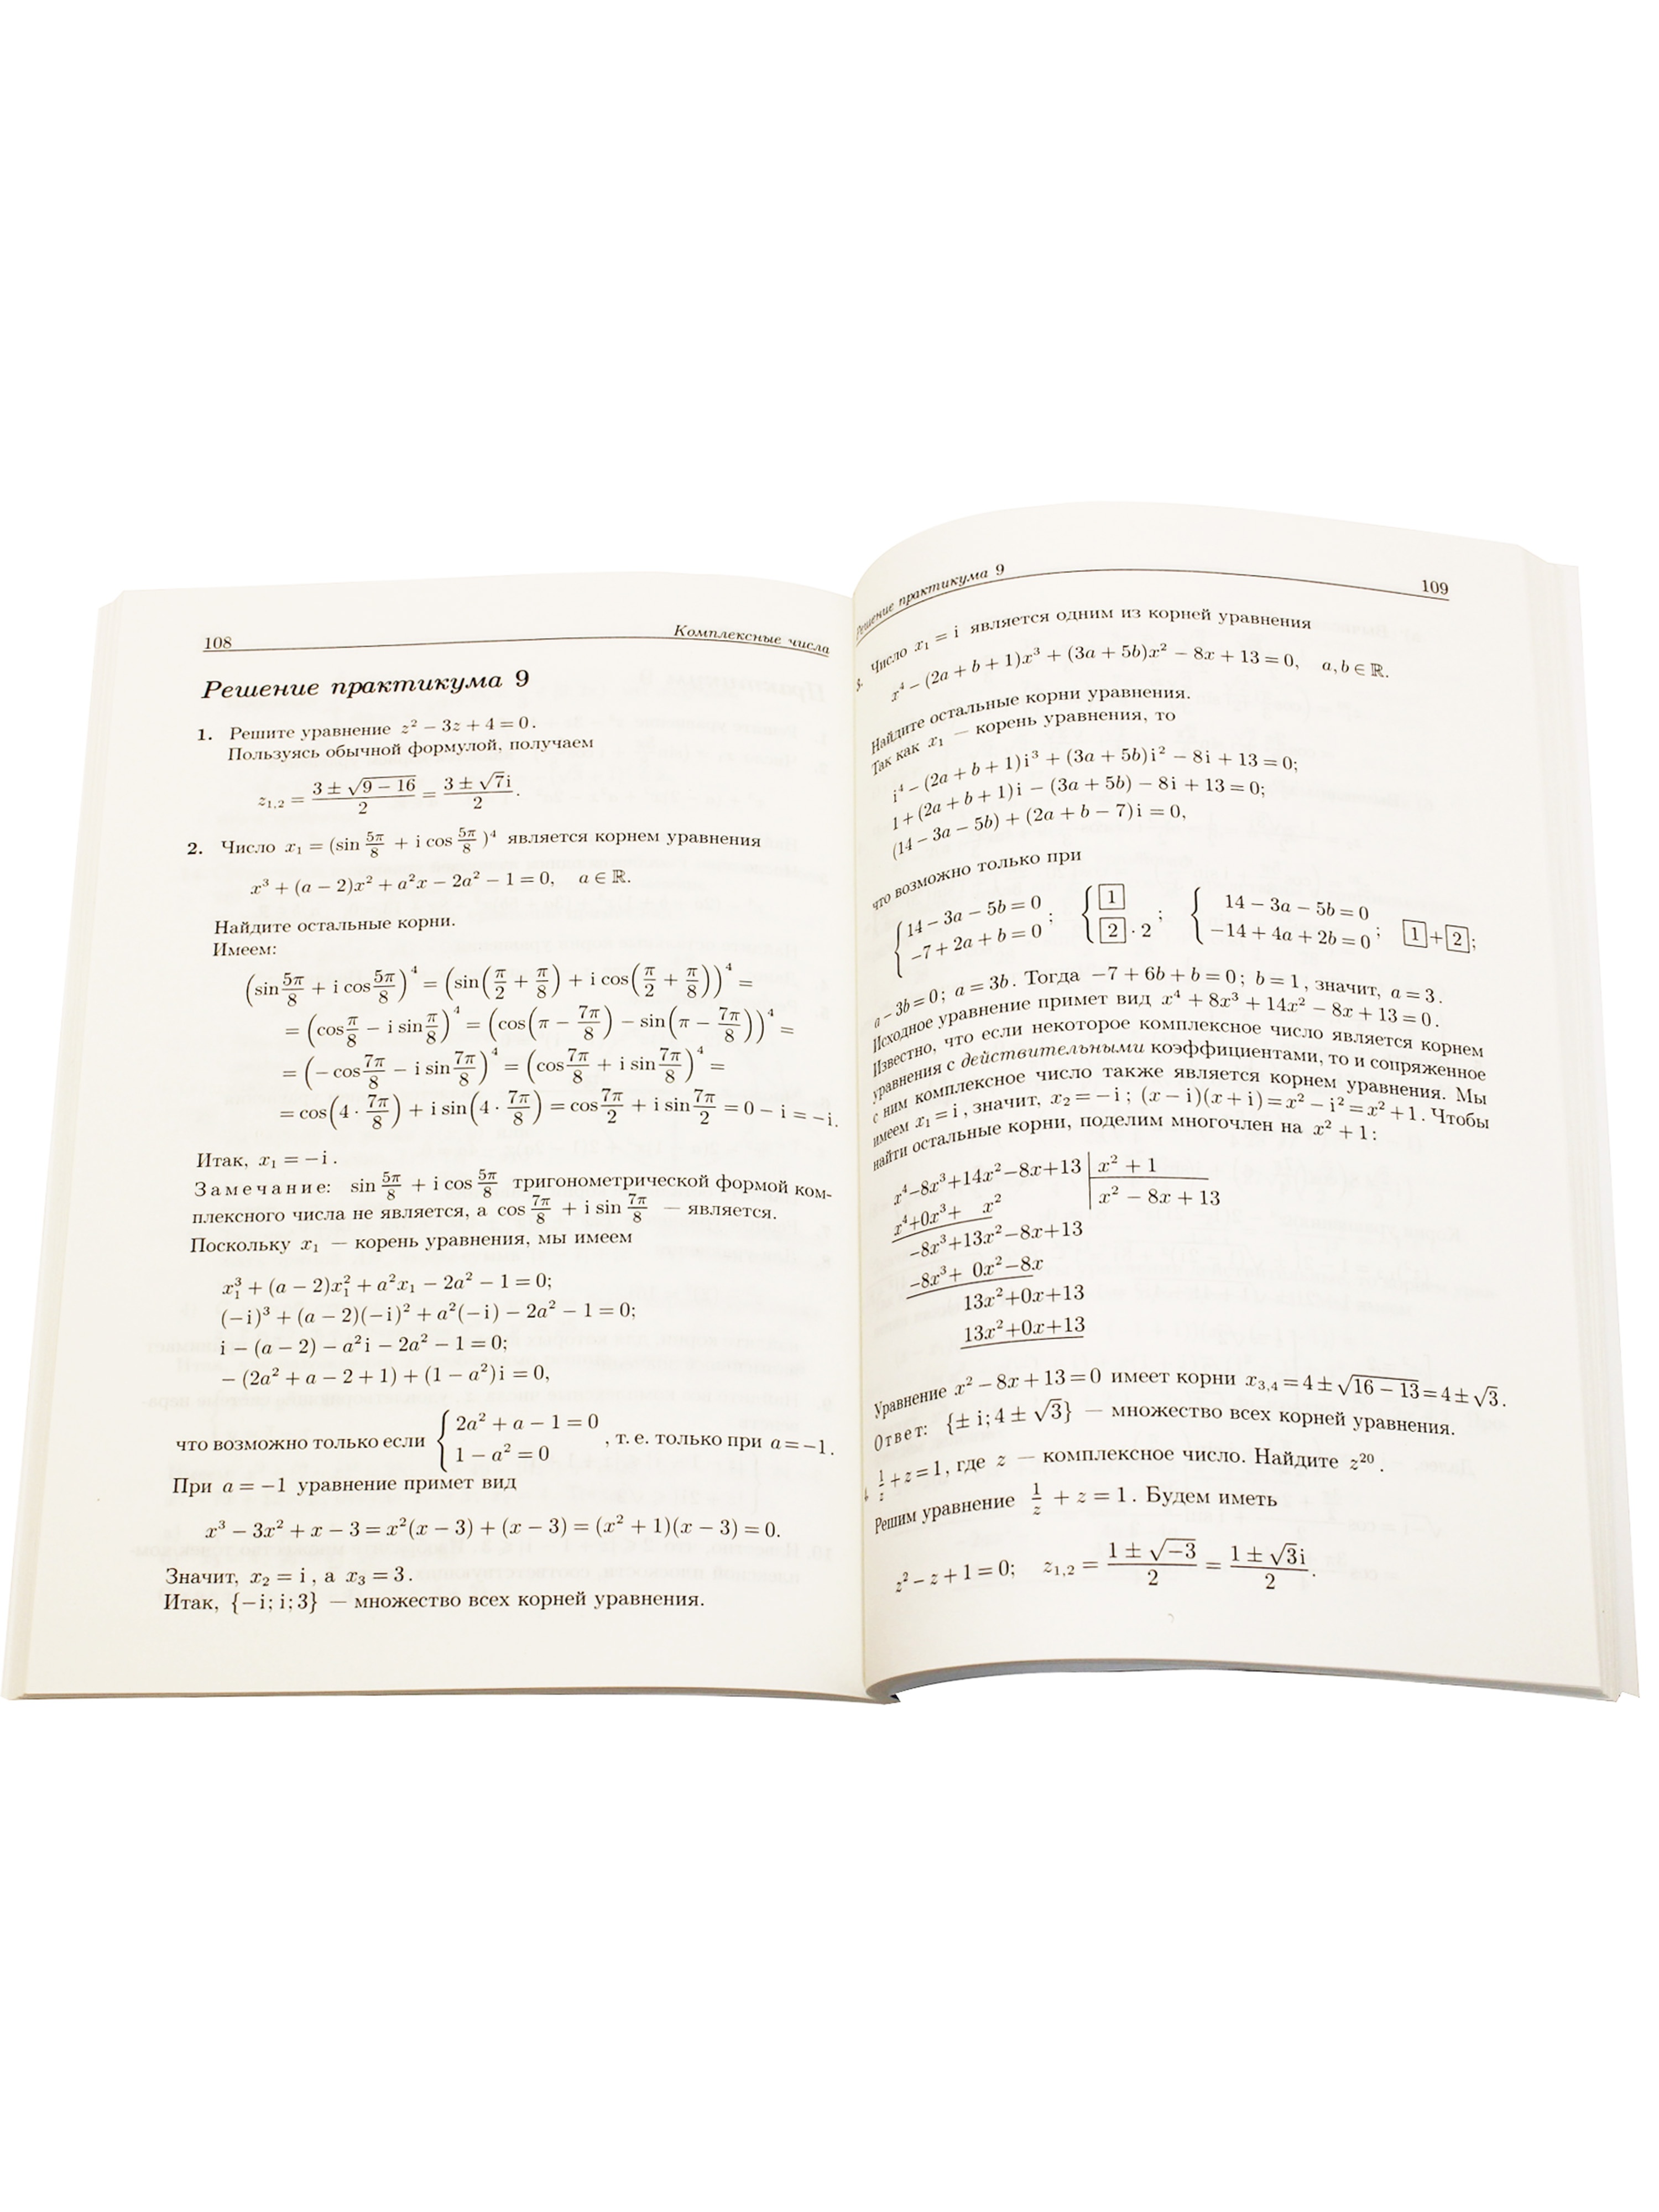 108 Комплексные числа
Решение практикума 9
1. Решите уравнение z² − 3z + 4 = 0.
Пользуясь обычной формулой, получаем
z₁,₂ = (3 ± √(9 − 16))/2 = (3 ± √7i)/2.
2. Число x₁ = (sin 5π/8 + i cos 5π/8)⁴ является корнем уравнения
x³ + (a − 2)x² + a²x − 2a² − 1 = 0, a ∈ ℝ.
Найдите остальные корни.
Имеем:
(sin 5π/8 + i cos 5π/8)⁴ = (sin(π/2 + π/8) + i cos(π/2 + π/8))⁴ =
= (cos π/8 − i sin π/8)⁴ = (cos(π − 7π/8) − sin(π − 7π/8))⁴ =
= (− cos 7π/8 − i sin 7π/8)⁴ = (cos 7π/8 + i sin 7π/8)⁴ =
= cos(4 · 7π/8) + i sin(4 · 7π/8) = cos 7π/2 + i sin 7π/2 = 0 − i = −i.
Итак, x₁ = −i.
Замечание: sin 5π/8 + i cos 5π/8 тригонометрической формой ком-
плексного числа не является, а cos 7π/8 + i sin 7π/8 — является.
Поскольку x₁ — корень уравнения, мы имеем
x₁³ + (a − 2)x₁² + a²x₁ − 2a² − 1 = 0;
(−i)³ + (a − 2)(−i)² + a²(−i) − 2a² − 1 = 0;
i − (a − 2) − a²i − 2a² − 1 = 0;
− (2a² + a − 2 + 1) + (1 − a²)i = 0,
что возможно только если { 2a² + a − 1 = 0 1 − a² = 0 , т. е. только при a = −1.
При a = −1 уравнение примет вид
x³ − 3x² + x − 3 = x²(x − 3) + (x − 3) = (x² + 1)(x − 3) = 0.
Значит, x₂ = i, а x₃ = 3.
Итак, {−i; i; 3} — множество всех корней уравнения.
Решение практикума 9 109
3. Число x₁ = i является одним из корней уравнения
x⁴ − (2a + b + 1)x³ + (3a + 5b)x² − 8x + 13 = 0, a, b ∈ ℝ.
Найдите остальные корни уравнения.
Так как x₁ — корень уравнения, то
i⁴ − (2a + b + 1)i³ + (3a + 5b)i² − 8i + 13 = 0;
1 + (2a + b + 1)i − (3a + 5b) − 8i + 13 = 0;
(14 − 3a − 5b) + (2a + b − 7)i = 0,
что возможно только при
{ 14 − 3a − 5b = 0 −7 + 2a + b = 0 ; { 1 2 · 2 ; { 14 − 3a − 5b = 0 −14 + 4a + 2b = 0 ; 1 + 2;
a − 3b = 0; a = 3b. Тогда −7 + 6b + b = 0; b = 1, значит, a = 3.
Исходное уравнение примет вид x⁴ + 8x³ + 14x² − 8x + 13 = 0.
Известно, что если некоторое комплексное число является корнем
уравнения с действительными коэффициентами, то и сопряженное
с ним комплексное число также является корнем уравнения. Мы
имеем x₁ = i, значит, x₂ = −i; (x − i)(x + i) = x² − i² = x² + 1. Чтобы
найти остальные корни, поделим многочлен на x² + 1:
x⁴−8x³+14x²−8x+13 | x² + 1
x⁴+0x³+ x² | x² − 8x + 13
−8x³+13x²−8x+13
−8x³+ 0x²−8x
13x²+0x+13
13x²+0x+13
Уравнение x² − 8x + 13 = 0 имеет корни x₃,₄ = 4 ± √(16 − 13) = 4 ± √3.
Ответ: {± i; 4 ± √3} — множество всех корней уравнения.
1/z + z = 1, где z — комплексное число. Найдите z²⁰.
Решим уравнение 1/z + z = 1. Будем иметь
z² − z + 1 = 0; z₁,₂ = (1 ± √−3)/2 = (1 ± √3i)/2.